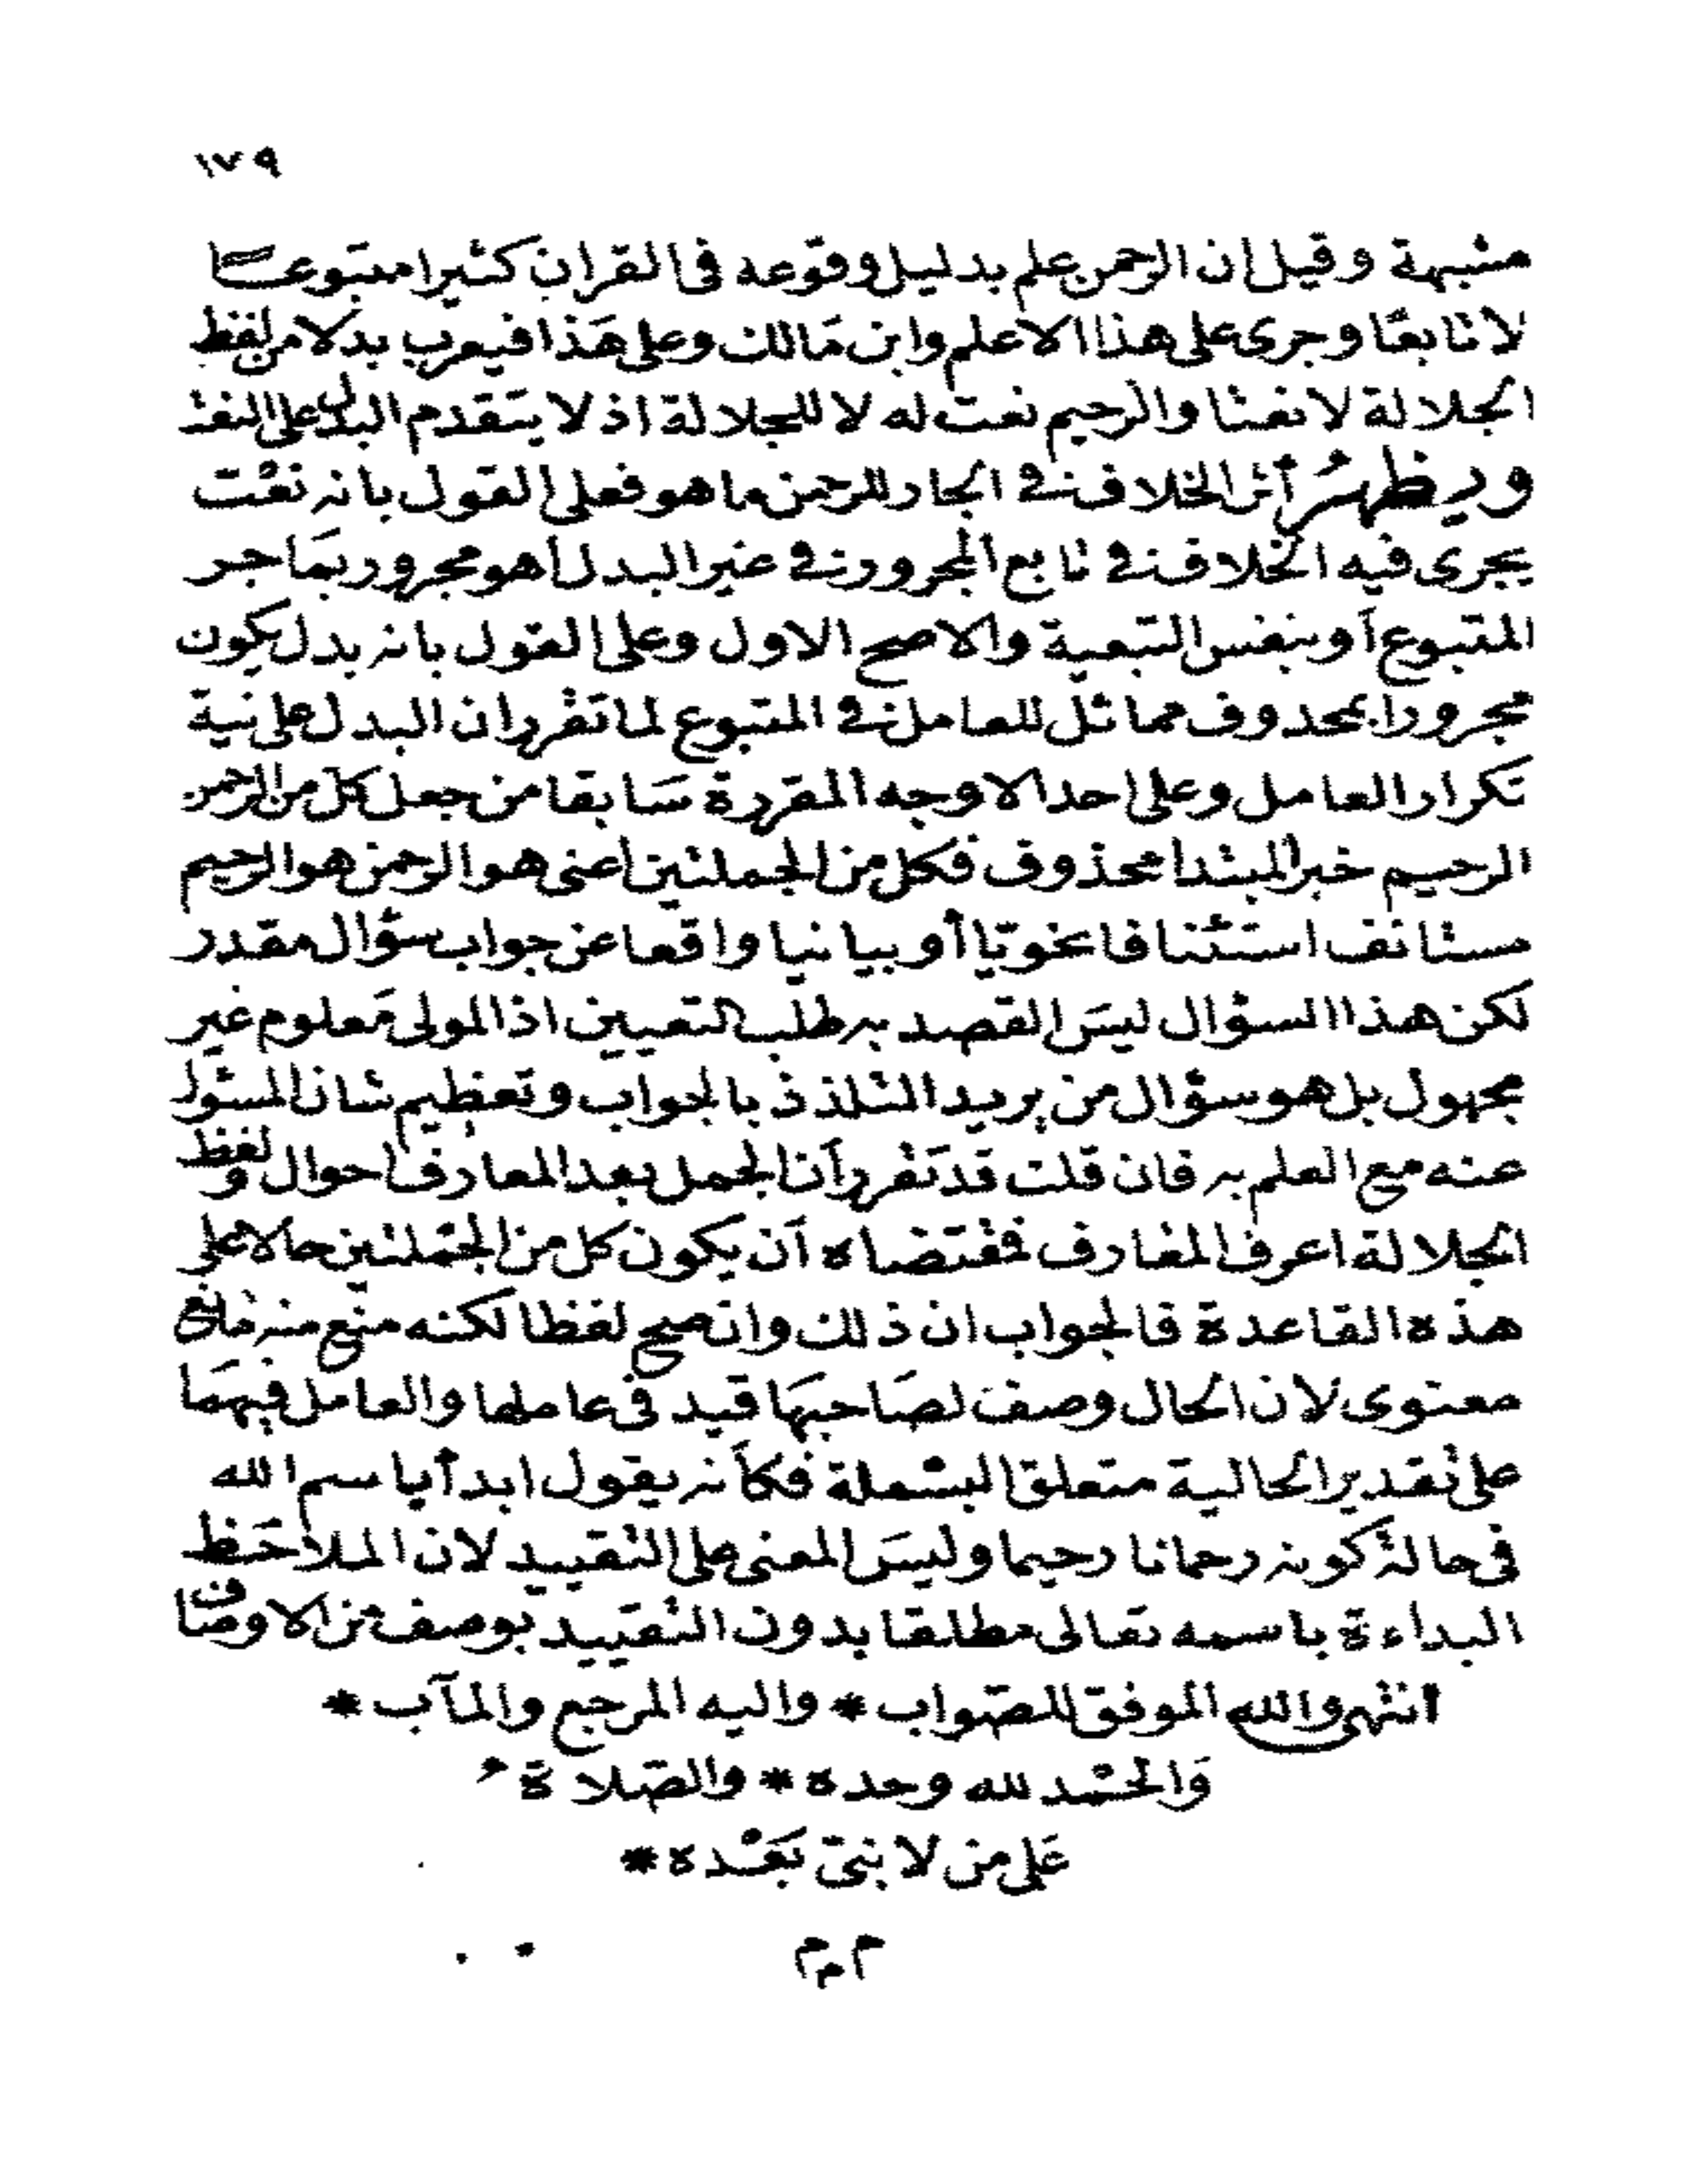 ١٧٩
مشبهة وقيل ان الرحمن علم بدليل وقوعه فى القران كثيرا متبوعا
لا تابعًا وجرى على هذا الاعلم وابن مَالك وعلى هَذا فيعرب بدلا من لفظ
الجلالة لا نعتا والرحيم نعت له لا للجلالة اذ لا يتقدم البدل على النعت
ويظهرُ أثر الخلاف فى الجار للرحمن ما هو فعلى القول بانه نعت
يجرى فيه الخلاف فى تابع المجرور فى غير البدل أهو مجرور بمَا جر
المتبوع أو بنفس التبعية والاصح الاول وعلى القول بانه بدل يكون
مجرورا بمحذوف مماثل للعامل فى المتبوع لما تقرر ان البدل على نية
تكرار العامل وعلى احد الاوجه المقررة سَابقا من جعل كل من الرحمن
الرحيم خبر المبتدا محذوف فكل من الجملتين أعنى هو الرحمن هو الرحيم
مستانف استئنافا نحويّا أو بيانيا واقعا عن جواب سؤال مقدر
لكن هذا السؤال ليسَ القصد به طلب التعيين اذ المولى مَعلوم غير
مجهول بل هو سؤال من يريد التلذذ بالجواب وتعظيم شان المسئول
عنه مع العلم به فان قلت قد تَقرر أن الجمل بعد المعارف احوال ولفظ
الجلالة اعرف المعارف فمقتضاه أن يكون كل من الجملتين حالا على
هذه القاعدة فالجواب ان ذلك وان صح لفظا لكنه منع منه مانع
معنوى لان الحال وصف لصَاحبهَا قيد فى عاملها والعامل فيهمَا
على تقدير الحالية متعلق البسملة فكأنه يقول ابدأ باسم الله
فى حالة كونه رحمانا رحيما وليسَ المعنى على التقييد لان الملاحَظ
البداءة باسمه تعالى مطلقا بدون التقييد بوصف من الاوصاف
انتهى والله الموفق للصّواب * واليه المرجع والمآب *
وَالحمد لله وحده * والصّلاة
عَلى من لا نبىّ بَعْده *
م م م